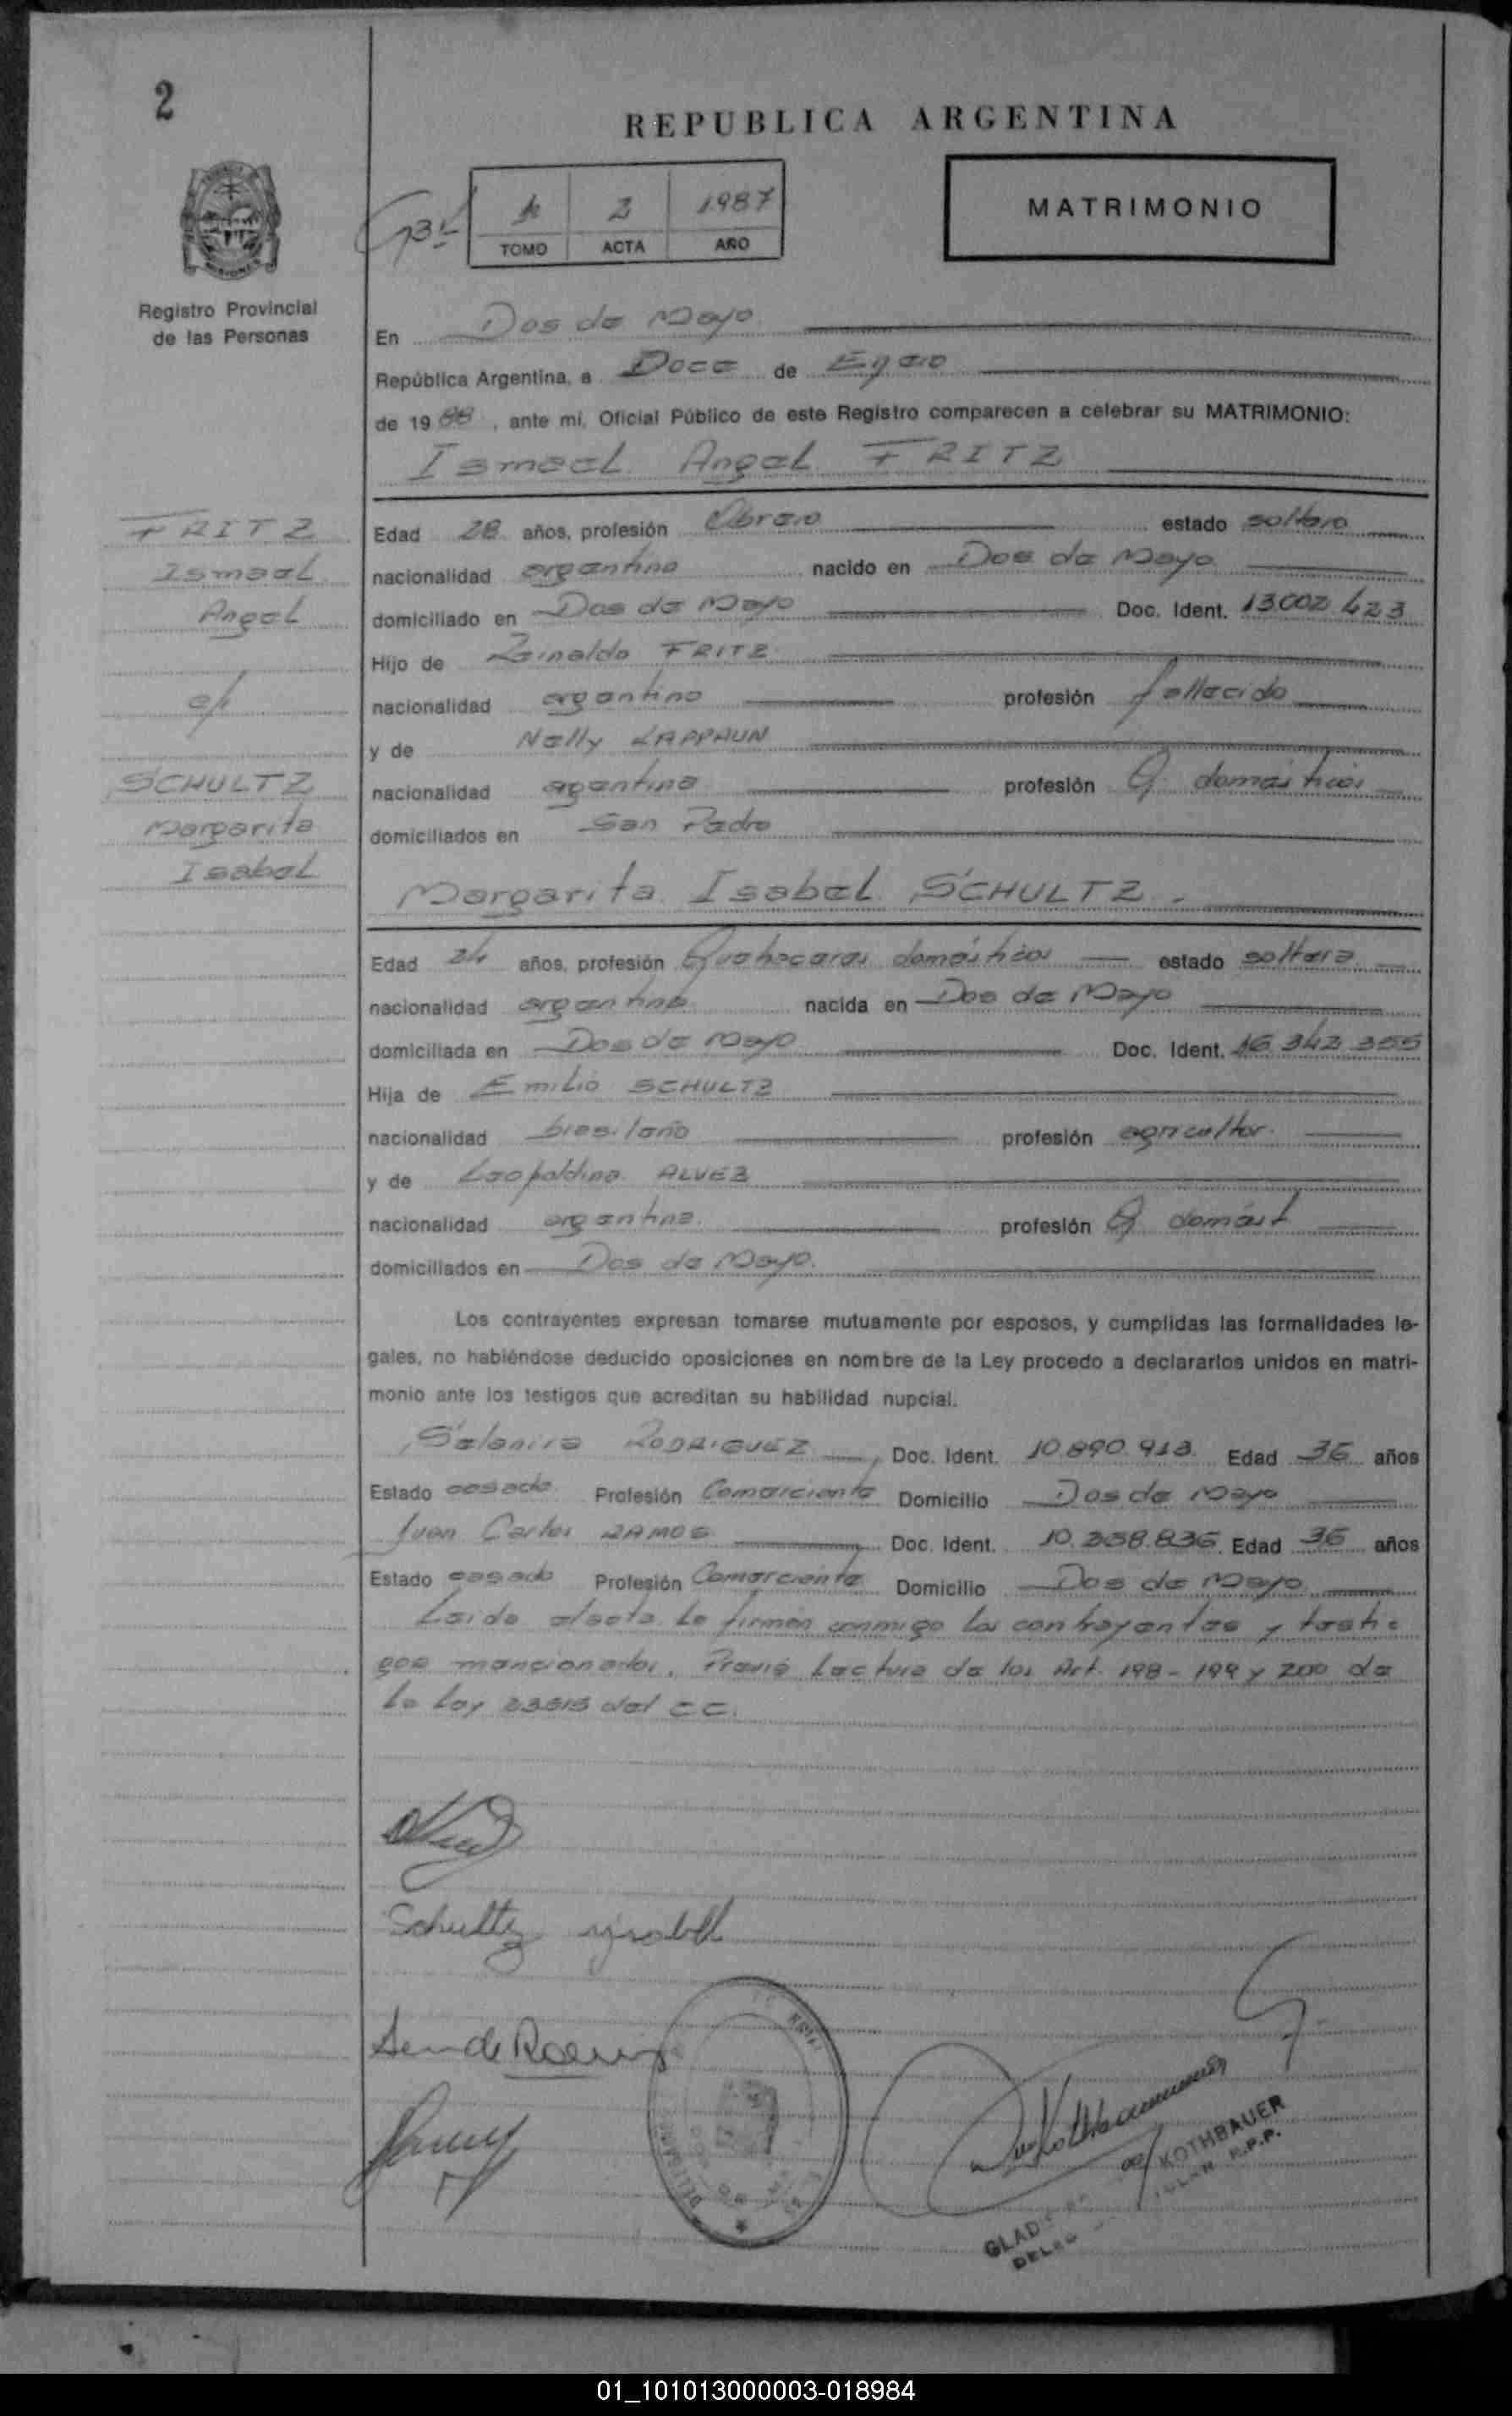 2
REPUBLICA ARGENTINA
2 1987
TOMO ACTA AÑO
MATRIMONIO
Registro Provincial
de las Personas
En Dos de Mayo
República Argentina, a Doce de Enero
de 1988, ante mi, Oficial Público de este Registro comparecen a celebrar su MATRIMONIO:
Ismael Angel FRITZ
FRITZ
Ismael
Angel
c/
SCHULTZ
Margarita
Isabel
Edad 28 años, profesión Obrero estado soltero
nacionalidad argentina nacido en Dos de Mayo
domiciliado en Dos de Mayo Doc. Ident. 13.002.423
Hijo de Reinaldo FRITZ
nacionalidad argentino profesión fallecido
y de Nelly KAPPAUN
nacionalidad argentina profesión Q. domésticos
domiciliados en San Pedro
Margarita Isabel SCHULTZ.
Edad 24 años, profesión Quehaceres domésticos estado soltera
nacionalidad argentina nacida en Dos de Mayo
domiciliada en Dos de Mayo Doc. Ident. 16.342.355
Hija de Emilio SCHULTZ
nacionalidad brasileño profesión agricultor
y de Leopoldina ALVEZ
nacionalidad argentina profesión Q. domést
domiciliados en Dos de Mayo
Los contrayentes expresan tomarse mutuamente por esposos, y cumplidas las formalidades le-
gales, no habiéndose deducido oposiciones en nombre de la Ley procedo a declararlos unidos en matri-
monio ante los testigos que acreditan su habilidad nupcial.
RODRIGUEZ Doc. Ident. 10.890.913 Edad 36 años
Estado casado Profesión Comerciante Domicilio Dos de Mayo
Juan Carlos RAMOS Doc. Ident. 10.338.836 Edad 36 años
Estado casado Profesión Comerciante Domicilio Dos de Mayo
Leida el acta la firman conmigo los contrayentes y testi-
gos mencionados. Previa Lectura de los Art. 198 - 199 y 200 de
la Ley 23515 del CC.
Schultz
KOTHBAUER
R.P.P.
01_101013000003-018984